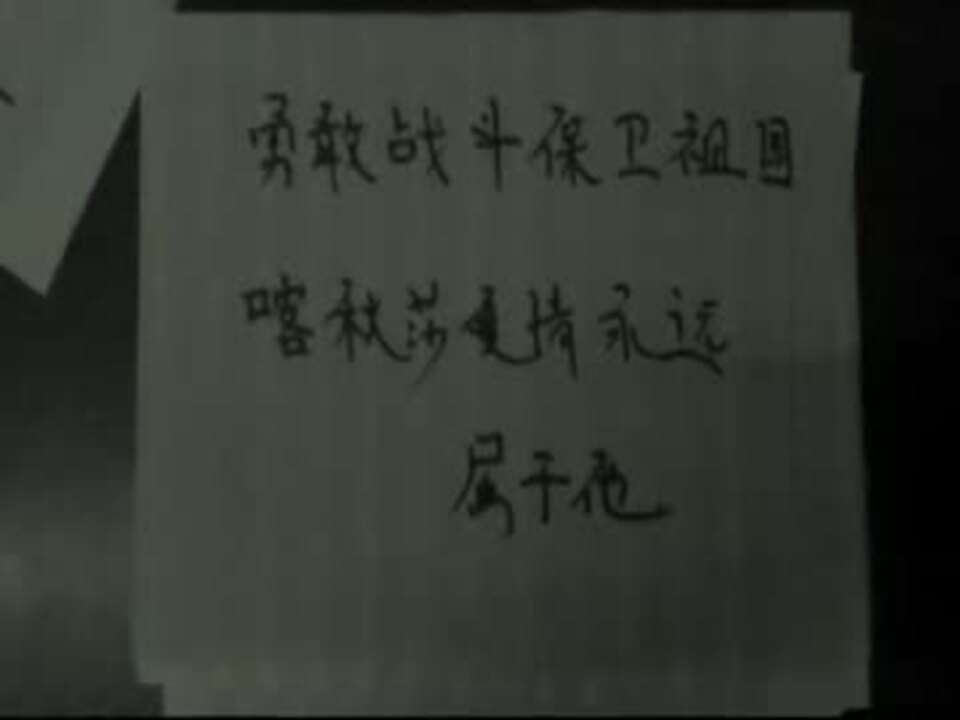 勇敢战斗保卫祖国
喀秋莎爱情永远
属于他